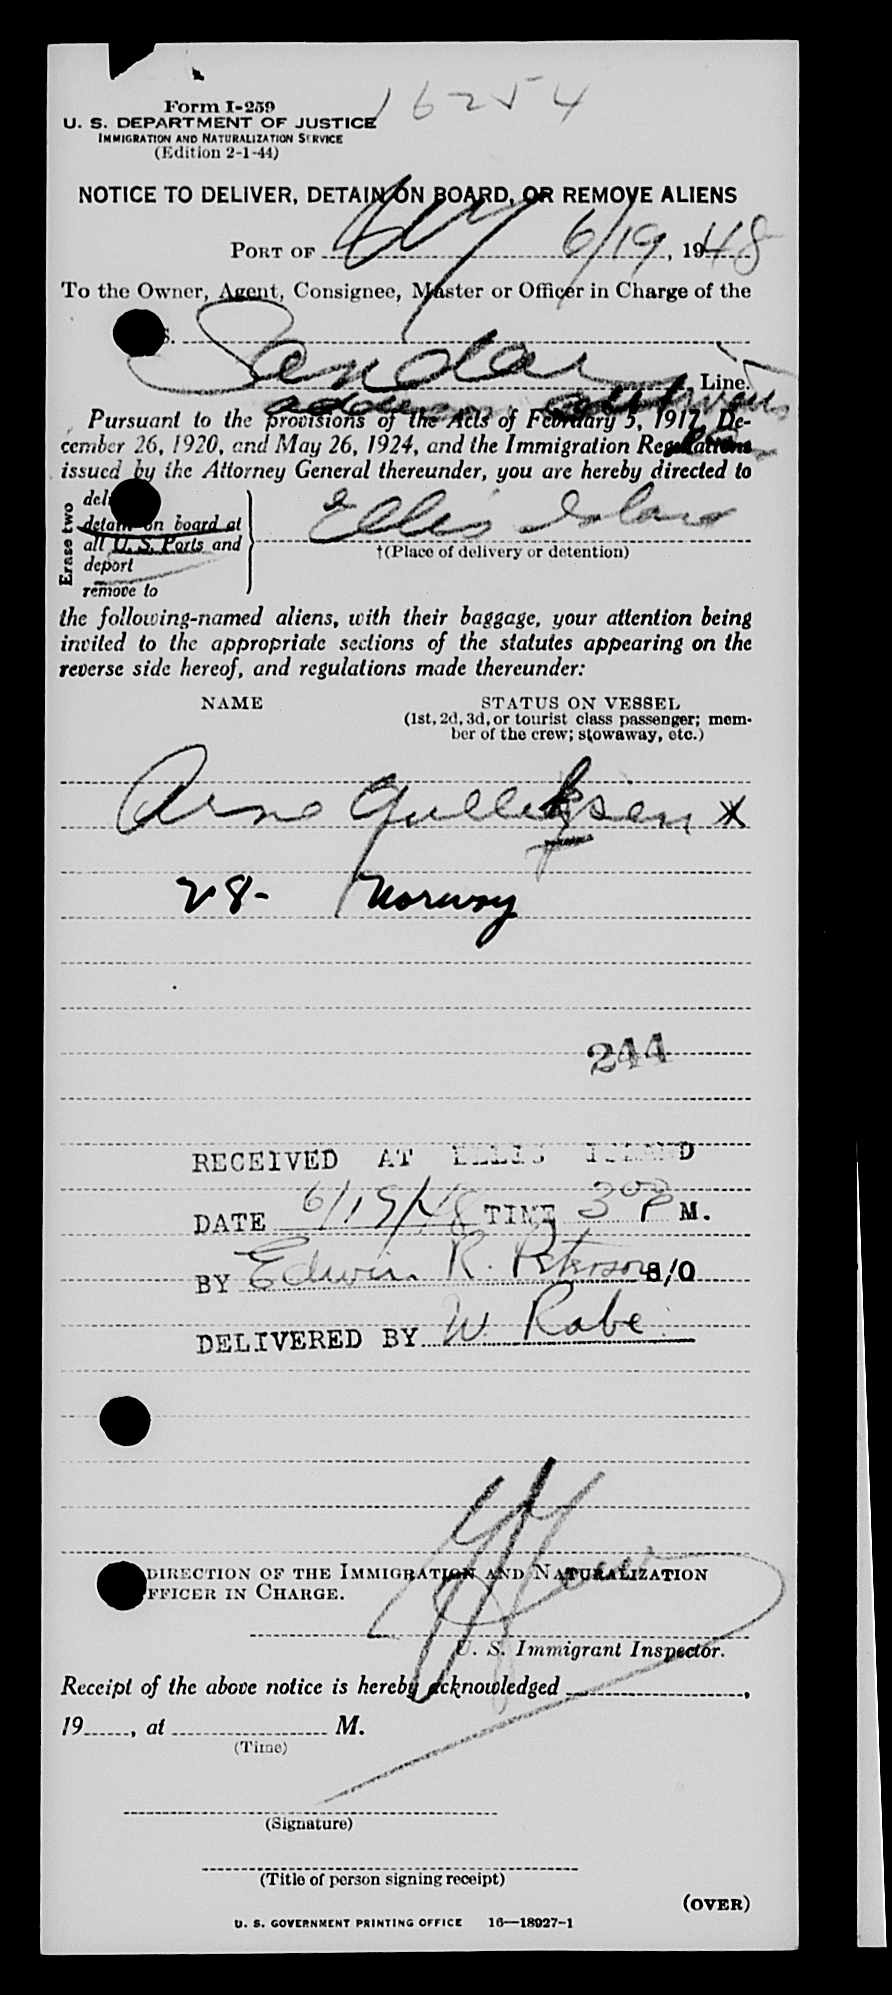 16254
Form I-259
U. S. DEPARTMENT OF JUSTICE
IMMIGRATION AND NATURALIZATION SERVICE
(Edition 2-1-44)
NOTICE TO DELIVER, DETAIN ON BOARD, OR REMOVE ALIENS
PORT OF NY 6/19, 1948
To the Owner, Agent, Consignee, Master or Officer in Charge of the
S.
Line.
Pursuant to the provisions of the Acts of February 5, 1917, De-
cember 26, 1920, and May 26, 1924, and the Immigration Regulations
issued by the Attorney General thereunder, you are hereby directed to
Erase two
detain on board at
all U. S. Ports and
deport
remove to
Ellis Island
†(Place of delivery or detention)
the following-named aliens, with their baggage, your attention being
invited to the appropriate sections of the statutes appearing on the
reverse side hereof, and regulations made thereunder:
NAME STATUS ON VESSEL
(1st, 2d, 3d, or tourist class passenger; mem-
ber of the crew; stowaway, etc.)
Arne Gulleksen x
28- Norway
244
RECEIVED AT ELLIS ISLAND
DATE 6/19/48 TIME 3 00 P M.
BY Edwin R. Peterson S/O
DELIVERED BY W Rabe
DIRECTION OF THE IMMIGRATION AND NATURALIZATION
FFICER IN CHARGE.
U. S. Immigrant Inspector.
Receipt of the above notice is hereby acknowledged ,
19 , at M.
(Time)
(Signature)
(Title of person signing receipt)
(OVER)
U. S. GOVERNMENT PRINTING OFFICE 16—18927-1